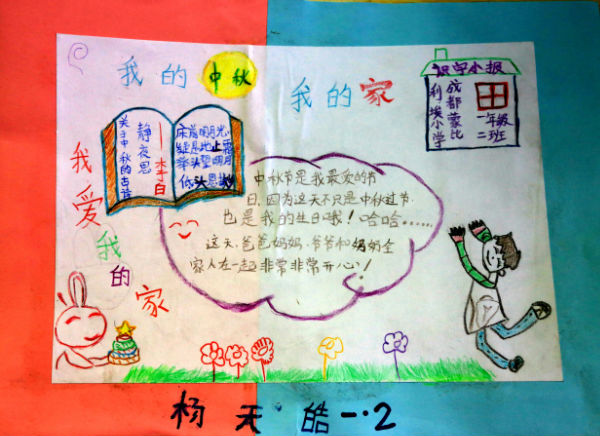 我的中秋
我的家
识字小报
成都蒙比
利埃小学
一年级
二班
关于中秋的古诗
静夜思
—李白
床前明月光
疑是地上霜
举头望明月
低头思
我爱我的家
中秋节是我最爱的节
日,因为这天不只是中秋过节.
也是我的生日哦!哈哈……
这天,爸爸妈妈.爷爷和奶奶全
家人在一起非常非常开心!
杨天皓一·2